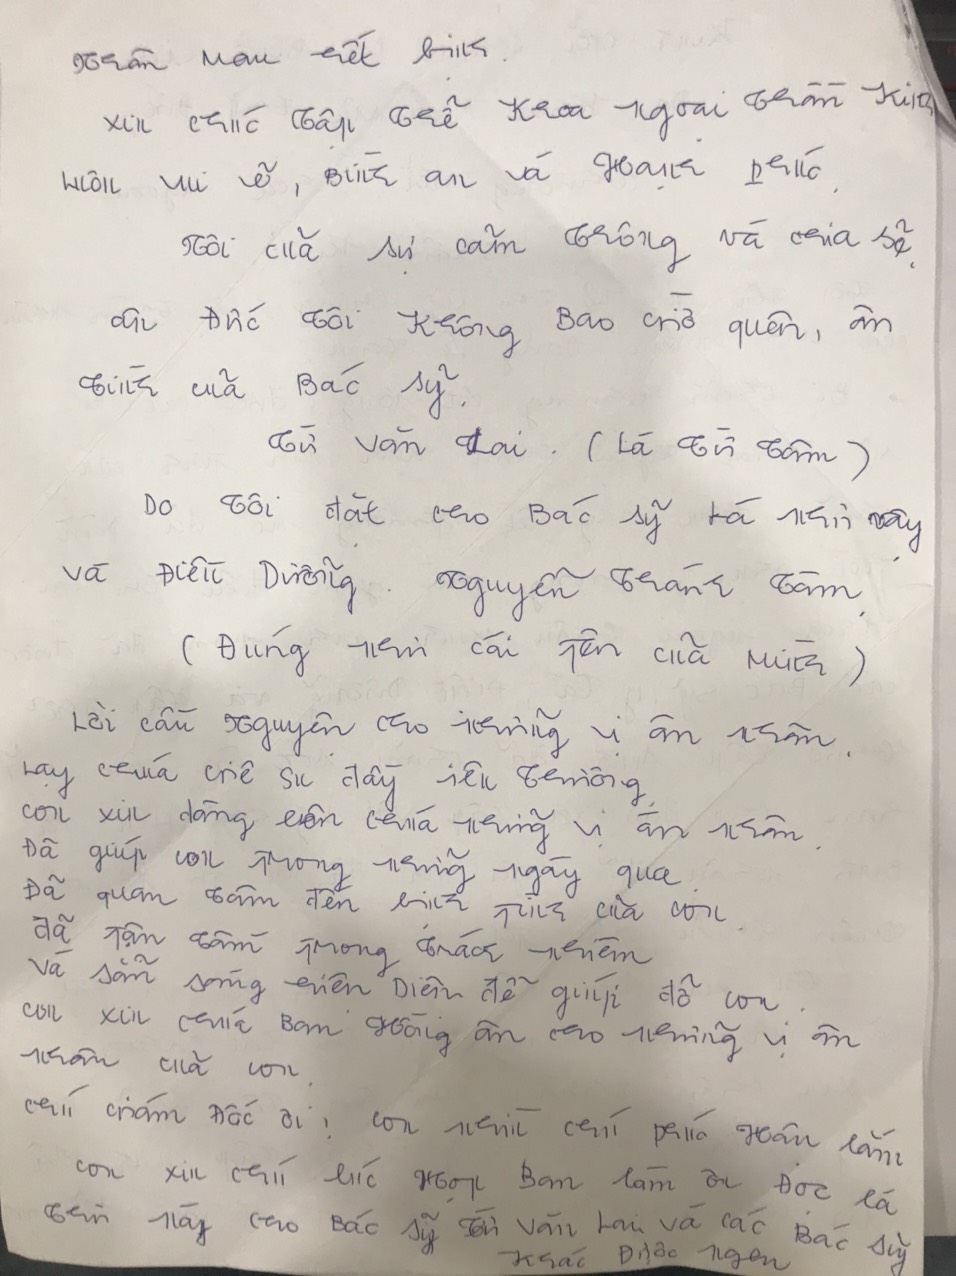 Nhân Mau hết bình.
Xin chúc tập thể Khoa ngoại thần kinh
luôn vui vẻ, Bình an và Hạnh phúc.
Tôi của sự cảm thông và chia sẻ.
ơn Đức tôi Không Bao giờ quên, ân
tình của Bác sỹ.
Từ văn Lai. (Là Từ tâm)
Do tôi đặt cho Bác sỹ Là như vậy
và Điều Dưỡng. Nguyễn Thành Tâm.
(Đúng như cái tên của Mình)
Lời cầu Nguyện cho những vị ân nhân.
Lạy chúa Giê su đầy yêu thương.
con xin dâng lên chúa những vị ân nhân.
Đã giúp con trong những ngày qua.
Đã quan tâm đến bình tình của con
đã tận tâm trong trách nhiệm
và sẵn sàng hiện Diện để giúp đỡ con.
con xin chúa Ban Hồng ân cho những vị ân
nhân của con.
chú giám Đốc ơi! con như chú phúc Hậu lắm
con xin chú lúc Họp Ban làm ơn Đọc lá
thư này cho Bác sỹ Từ Văn Lai và các Bác sỹ
Khác Được ngen